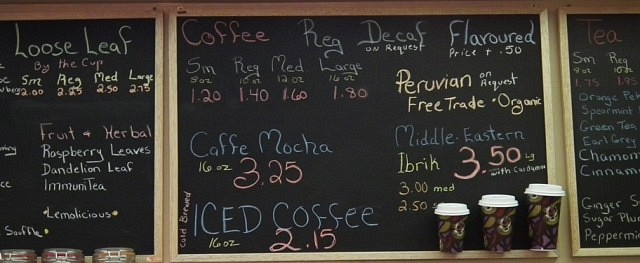 Loose Leaf
By the Cup
Sm Reg Med Large
2.00 2.25 2.50 2.75
Fruit & Herbal
Raspberry Leaves
Dandelion Leaf
ImmuniTea
•Lemolicious•
Souffle•
Coffee Reg Decaf Flavoured
on Request Price + .50
Sm Reg Med Large
8oz 10oz 12oz 16oz
1.20 1.40 1.60 1.80
Peruvian on Request
Free Trade • Organic
Caffe Mocha
16oz 3.25
Middle-Eastern
Ibrik 3.50 Lg
with Cardamom
3.00 med
2.50
Cold Brewed
ICED Coffee
16oz 2.15
Tea
Sm Reg
8oz 10oz
1.75
Orange Pek
Spearmint
Green Tea
Earl Grey
Chamom
Cinnam
Ginger S
Sugar Plu
Peppermi